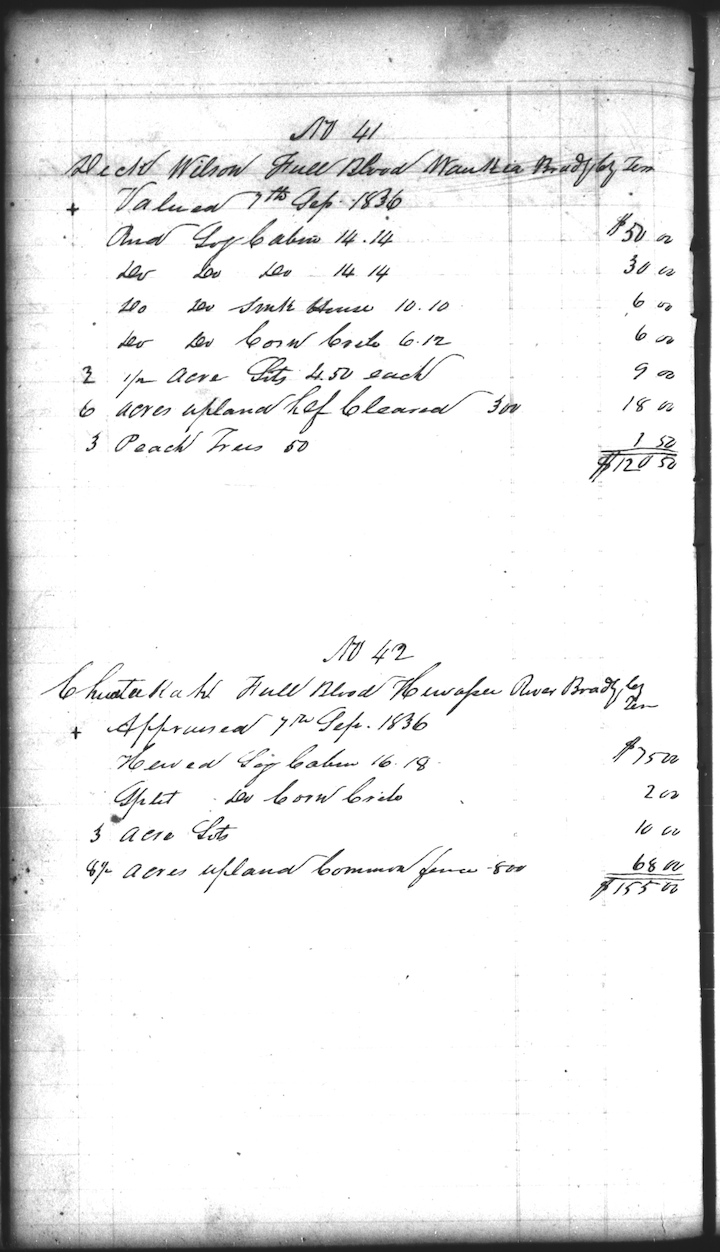 No 41
Deck Wilson Full Blood Wankea Bradly Cy Ten
+ Valued 7th Sep. 1836
Rnd Log Cabin 14.14 $50 00
Do Do Do 14 14 30 00
Do Do Smk House 10.10 6 00
Do Do Corn Crib 6.12 6 00
2 1/2 Acre Lots 4.50 each 9 00
6 acres upland hlf Cleared 300 18 00
3 Peach Trees 50 1 50
$120 50
No 42
Full Blood Hewassee River Bradly Cy
Ten
+ Appraised 7th Sep. 1836
Hewed Log Cabin 16.18 $75 00
Split Do Corn Crib 2 00
3 Acre Lots 10 00
8 1/2 Acres upland Common fence 800 68 00
$155 00